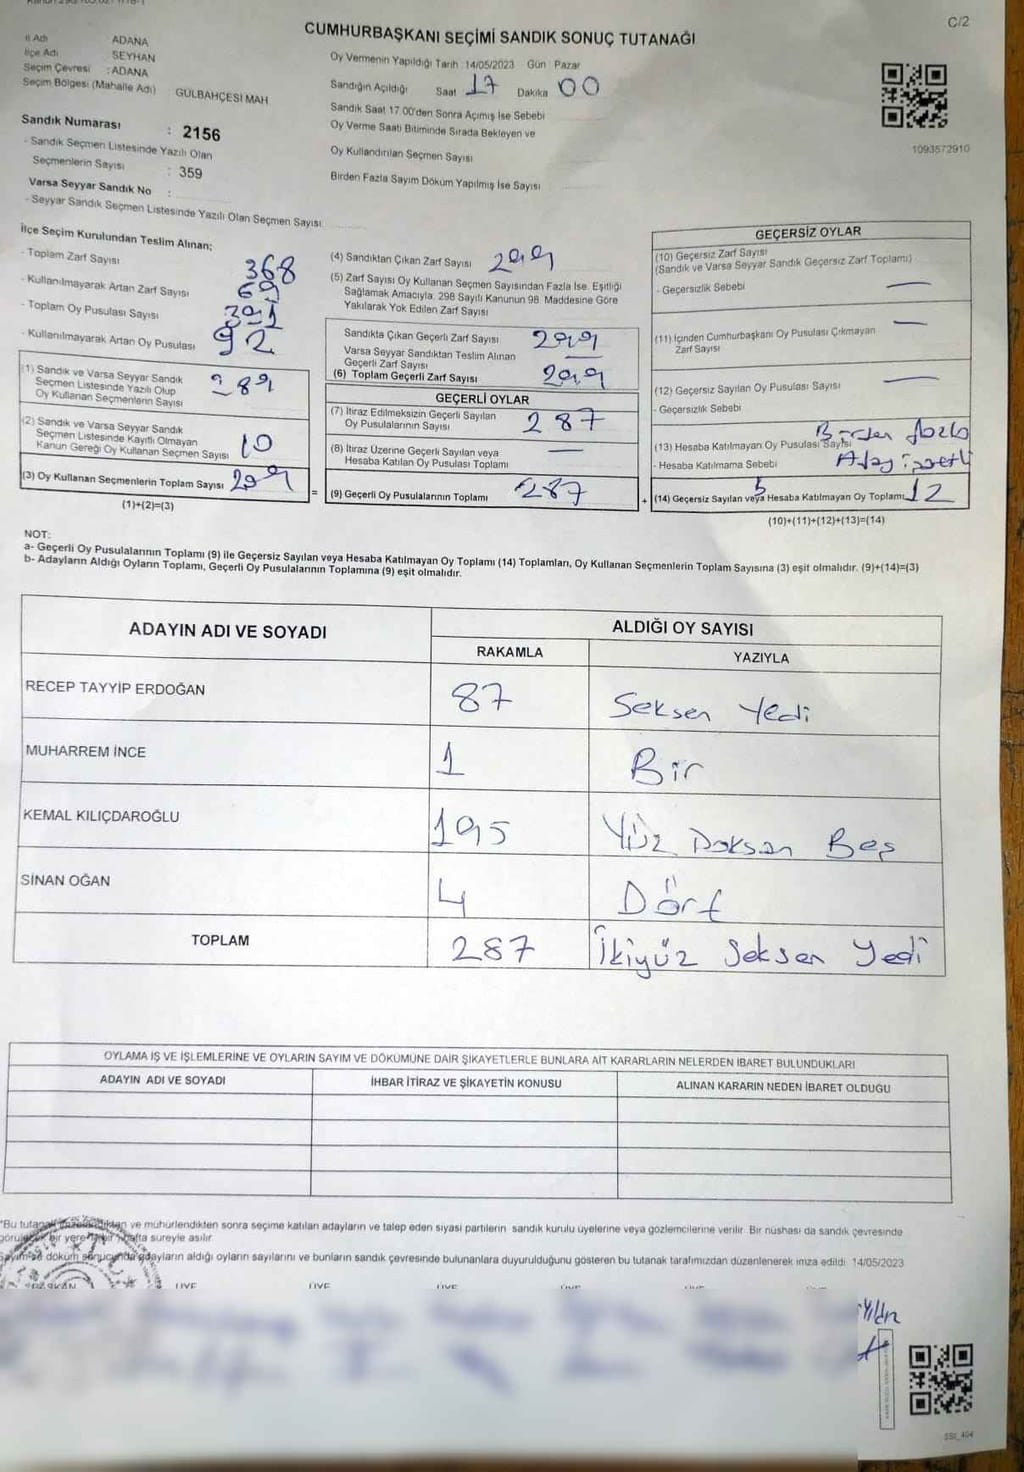 C/2
CUMHURBAŞKANI SEÇİMİ SANDIK SONUÇ TUTANAĞI
İl Adı ADANA
İlçe Adı SEYHAN
Seçim Çevresi : ADANA
Seçim Bölgesi (Mahalle Adı) GÜLBAHÇESİ MAH
Sandık Numarası : 2156
- Sandık Seçmen Listesinde Yazılı Olan
Seçmenlerin Sayısı : 359
Varsa Seyyar Sandık No :
- Seyyar Sandık Seçmen Listesinde Yazılı Olan Seçmen Sayısı
Oy Vermenin Yapıldığı Tarih :14/05/2023 Gün Pazar
Sandığın Açıldığı Saat 17 Dakika 00
Sandık Saat 17.00'den Sonra Açılmış İse Sebebi
Oy Verme Saati Bitiminde Sırada Bekleyen ve
Oy Kullandırılan Seçmen Sayısı
Birden Fazla Sayım Döküm Yapılmış İse Sayısı
1093572910
İlçe Seçim Kurulundan Teslim Alınan;
- Toplam Zarf Sayısı 368
- Kullanılmayarak Artan Zarf Sayısı 69
- Toplam Oy Pusulası Sayısı 391
- Kullanılmayarak Artan Oy Pusulası 92
(1) Sandık ve Varsa Seyyar Sandık
Seçmen Listesinde Yazılı Olup
Oy Kullanan Seçmenlerin Sayısı 289
(2) Sandık ve Varsa Seyyar Sandık
Seçmen Listesinde Kayıtlı Olmayan
Kanun Gereği Oy Kullanan Seçmen Sayısı 10
(3) Oy Kullanan Seçmenlerin Toplam Sayısı 299
(1)+(2)=(3)
(4) Sandıktan Çıkan Zarf Sayısı 299
(5) Zarf Sayısı Oy Kullanan Seçmen Sayısından Fazla İse, Eşitliği
Sağlamak Amacıyla, 298 Sayılı Kanunun 98. Maddesine Göre
Yakılarak Yok Edilen Zarf Sayısı
Sandıkta Çıkan Geçerli Zarf Sayısı 299
Varsa Seyyar Sandıktan Teslim Alınan
Geçerli Zarf Sayısı —
(6) Toplam Geçerli Zarf Sayısı 299
GEÇERLİ OYLAR
(7) İtiraz Edilmeksizin Geçerli Sayılan
Oy Pusulalarının Sayısı 287
(8) İtiraz Üzerine Geçerli Sayılan veya
Hesaba Katılan Oy Pusulası Toplamı —
= (9) Geçerli Oy Pusulalarının Toplamı 287
GEÇERSİZ OYLAR
(10) Geçersiz Zarf Sayısı
(Sandık ve Varsa Seyyar Sandık Geçersiz Zarf Toplamı)
- Geçersizlik Sebebi —
(11) İçinden Cumhurbaşkanı Oy Pusulası Çıkmayan —
Zarf Sayısı
(12) Geçersiz Sayılan Oy Pusulası Sayısı —
- Geçersizlik Sebebi
(13) Hesaba Katılmayan Oy Pusulası Sayısı Birden fazla
- Hesaba Katılmama Sebebi Aday işaretli
+ (14) Geçersiz Sayılan veya Hesaba Katılmayan Oy Toplamı 12
(10)+(11)+(12)+(13)=(14)
NOT:
a- Geçerli Oy Pusulalarının Toplamı (9) ile Geçersiz Sayılan veya Hesaba Katılmayan Oy Toplamı (14) Toplamları, Oy Kullanan Seçmenlerin Toplam Sayısına (3) eşit olmalıdır. (9)+(14)=(3)
b- Adayların Aldığı Oyların Toplamı, Geçerli Oy Pusulalarının Toplamına (9) eşit olmalıdır.
ADAYIN ADI VE SOYADI ALDIĞI OY SAYISI
RAKAMLA YAZIYLA
RECEP TAYYİP ERDOĞAN 87 Seksen Yedi
MUHARREM İNCE 1 Bir
KEMAL KILIÇDAROĞLU 195 Yüz Doksan Beş
SİNAN OĞAN 4 Dört
TOPLAM 287 İkiyüz Seksen Yedi
OYLAMA İŞ VE İŞLEMLERİNE VE OYLARIN SAYIM VE DÖKÜMÜNE DAİR ŞİKAYETLERLE BUNLARA AİT KARARLARIN NELERDEN İBARET BULUNDUKLARI
ADAYIN ADI VE SOYADI İHBAR İTİRAZ VE ŞİKAYETİN KONUSU ALINAN KARARIN NEDEN İBARET OLDUĞU
ve mühürlendikten sonra seçime katılan adayların ve talep eden siyasi partilerin sandık kurulu üyelerine veya gözlemcilerine verilir. Bir nüshası da sandık çevresinde
hafta süreyle asılır.
Sayım ve döküm sonucunda adayların aldığı oyların sayılarını ve bunların sandık çevresinde bulunanlara duyurulduğunu gösteren bu tutanak tarafımızdan düzenlenerek imza edildi. 14/05/2023
ÜYE ÜYE ÜYE
SSI_404